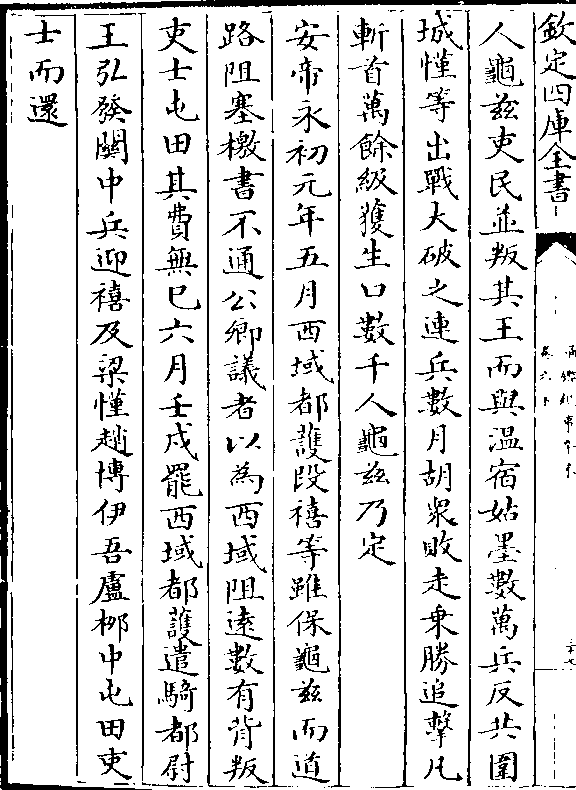 欽定四庫全書
人龜兹吏民並叛其王而與温宿姑墨數萬兵反共圍
城慬等出戰大破之連兵數月胡衆敗走乗勝追擊凡
斬首萬餘級獲生口數千人龜兹乃定
安帝永初元年五月西域都護段禧等雖保龜兹而道
路阻塞檄書不通公卿議者以為西域阻逺數有背叛
吏士屯田其費無已六月壬戌罷西域都護遣騎都尉
王弘發關中兵迎禧及梁慬趙博伊吾盧栁中屯田吏
士而還